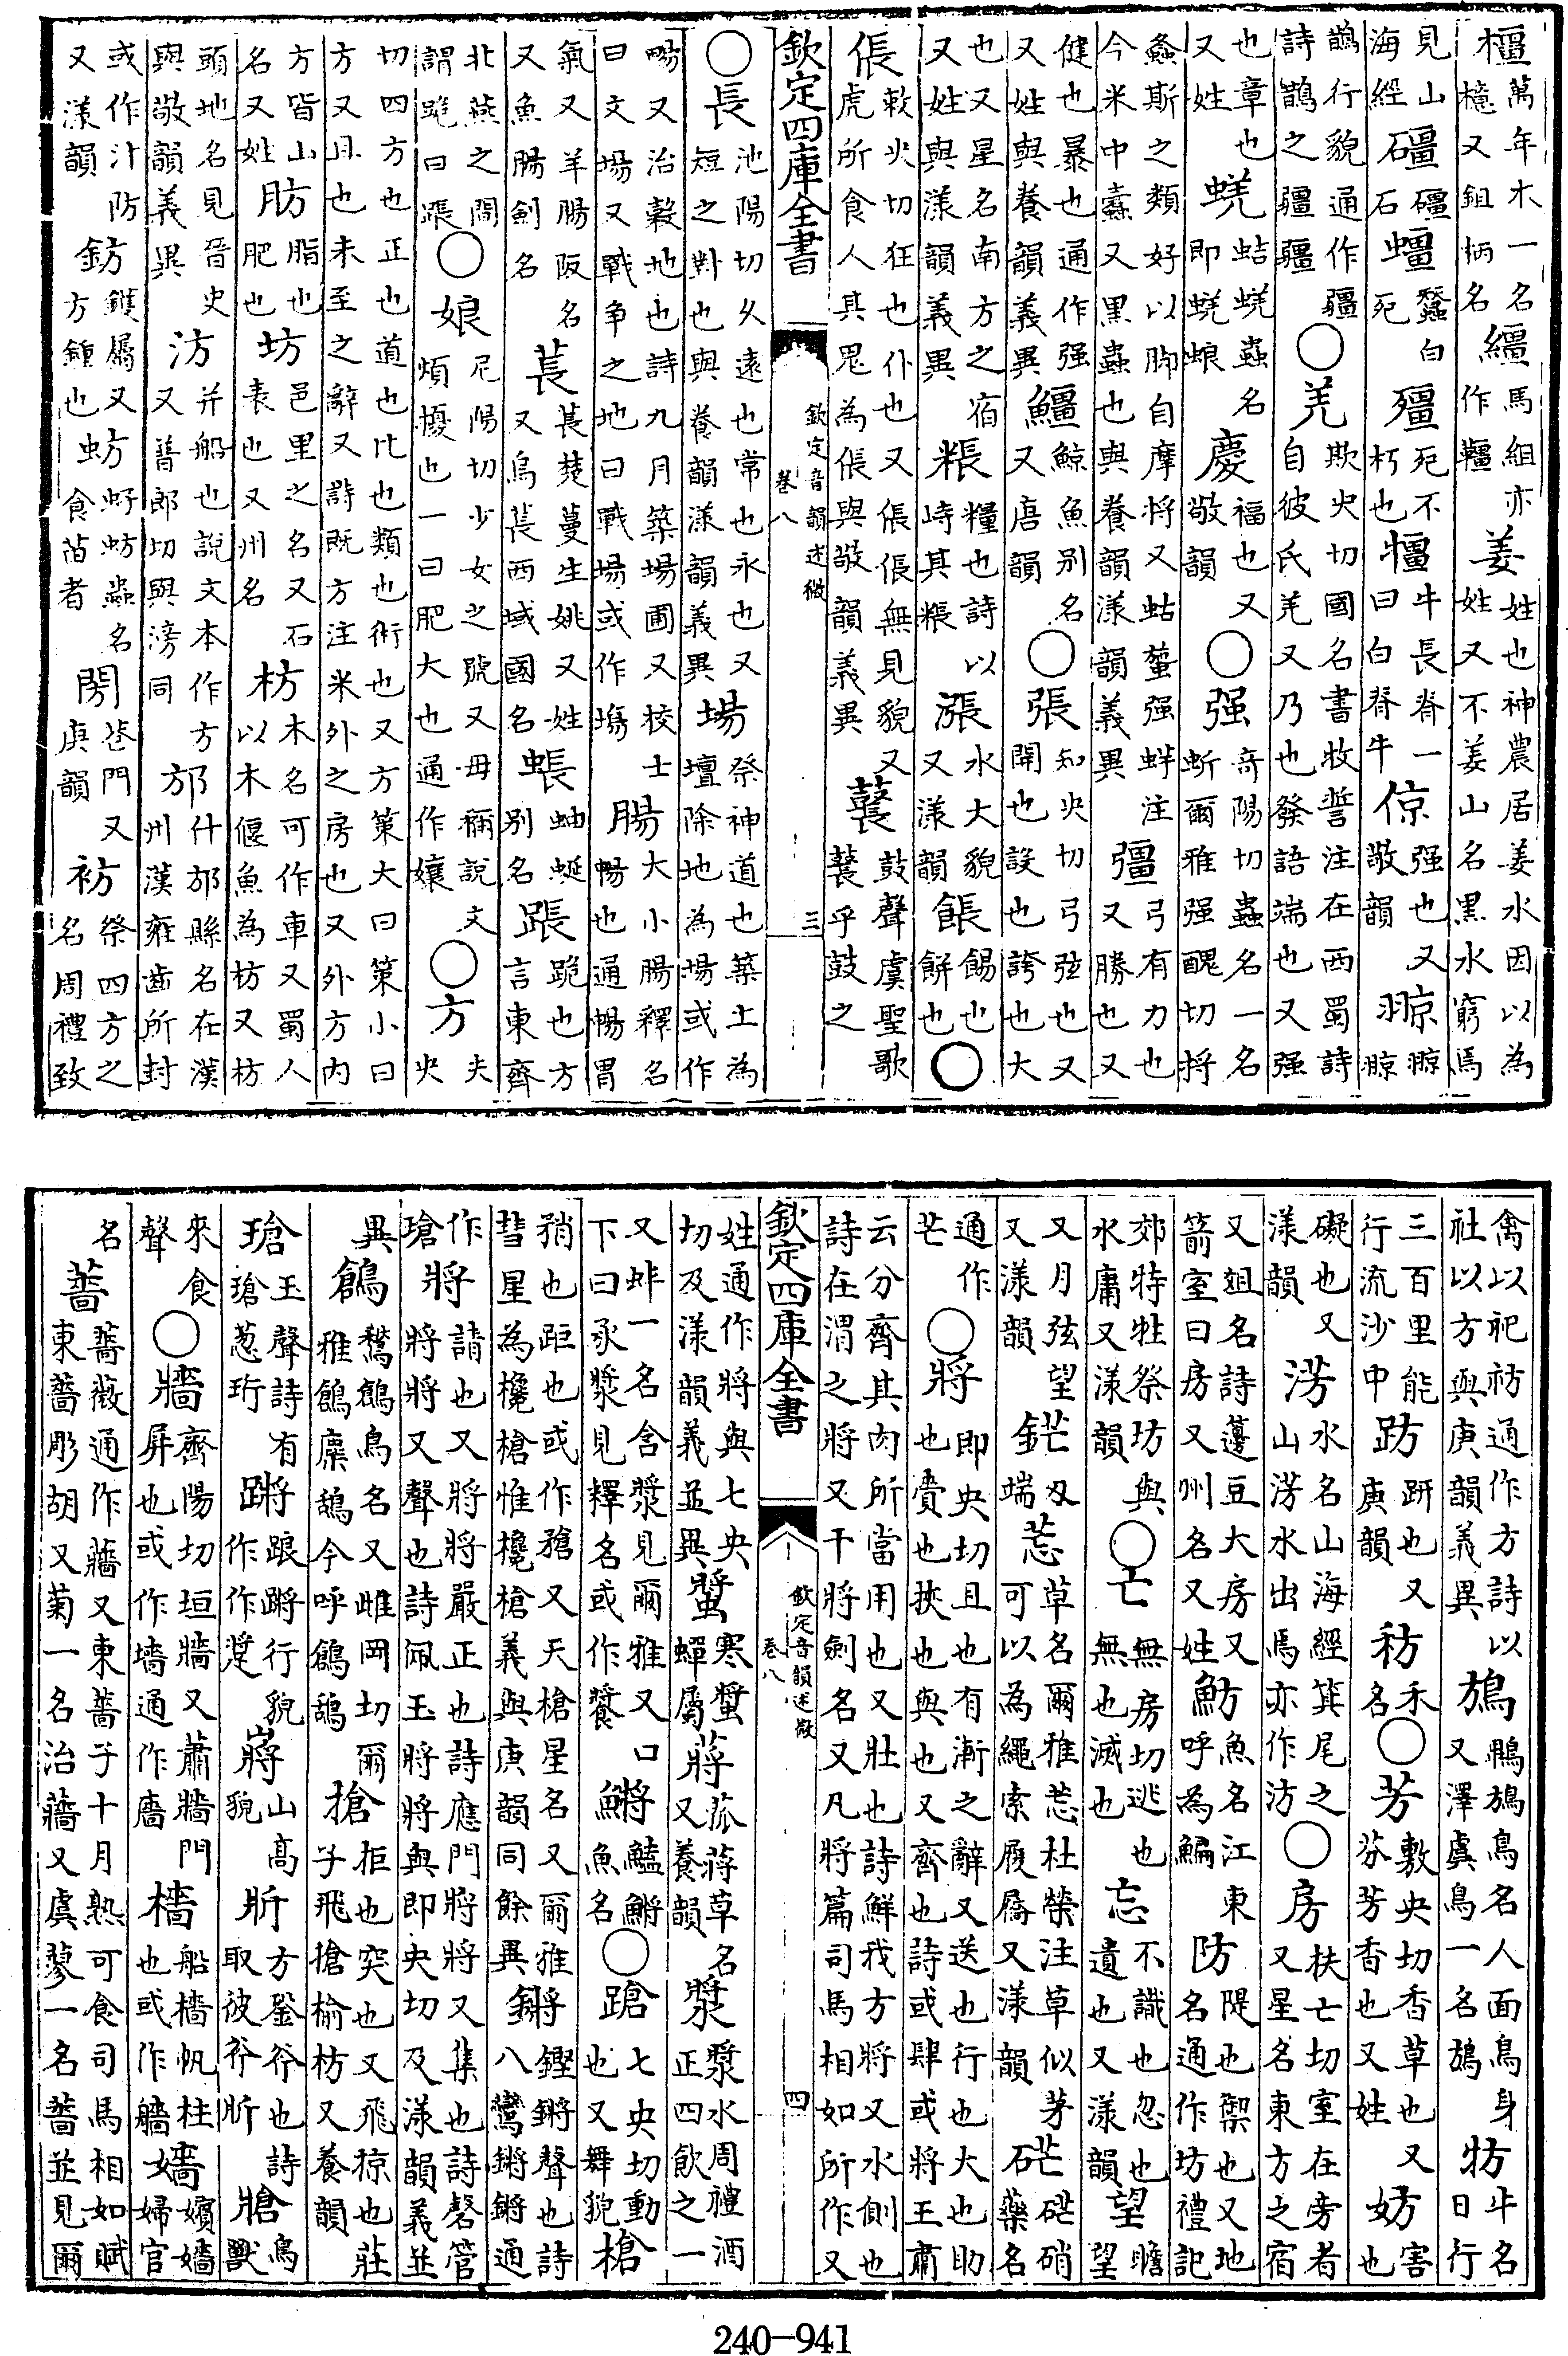 橿萬年木一名檍又鉏柄名繮馬紲亦作韁姜姓也神農居姜水因以為姓又不姜山名黑水窮焉
見山海經礓礓石蠶白死殭死不朽也牛長脊一曰白脊牛倞强也又敬韻
鵲行貌詩鵲之疆疆通作彊○羌欺央切國名書牧誓注在西蜀詩自彼氐羌又乃也發語端也又强
也章也又姓蜣蛣蜣蟲名即蜣蜋慶福也又敬韻○强奇陽切蟲名一名蚚爾雅强醜切將
螽斯之類好以脚自摩捋又蛄䗐强蛘注今米中蠹又黑蟲也與養韻漾韻義異彊弓有力也又勝也又
健也暴也通作强又姓與養韻義異䲔鯨魚別名又唐韻○張知央切弓弦也又開也設也誇也大
也又星名南方之宿又姓與漾韻義異粻糧也詩以峙其粻漲水大貌又漾韻餦餳也餅也○
倀敕央切狂也仆也又倀倀無見貌又虎所食人其鬼為倀與敬韻義異鼚鼓聲虞聖歌鼚乎鼓之
欽定四庫全書 欽定音韻述微 卷八 三
○長池陽切久遠也常也永也又短之對也與養韻漾韻義異場祭神道也築土為壇除地為場或作
畼又治穀地也詩九月築場圃又校士曰文場又戰争之地曰戰場或作塲腸大小腸釋名暢也通暢胃
氣又羊腸阪名又魚腸劍名萇萇楚蔓生姚又姓又烏萇西域國名蚰蜒別名䠆跪也方言東齊
北燕之間謂跪曰䠆○娘尼陽切少女之號又毋稱說文煩擾也一曰肥大也通作孃○方夫央
切四方也正也道也比也類也術也又方策大曰策小曰方又且也未至之辭又詩既方注米外之房也又外方内
方皆山名又姓肪脂也肥也坊邑里之名又石表也又州名枋木名可作車又蜀人以木偃魚為枋又枋
頭地名見晉史與敬韻義異汸并船也說文本作方又普郎切與滂同邡什邡縣名在漢州漢雍齒所封
或作汁防又漾韻鈁鑊屬又方鍾也蚄虸蚄蟲名食苗者閍巷門又庚韻祊祭四方之名周禮致
禽以祀祊通作方詩以社以方與庚韻義異鴋鸊鴋鳥名人面鳥身又澤虞鳥一名鴋牥牛名日行
三百里能行流沙中趽趼也又庚韻䄱禾名○芳敷央切香草也又芬芳香也又姓妨害也
礙也又漾韻淓水名山海經箕尾之山淓水出焉亦作汸○房扶亡切室在旁者又星名東方之宿
又俎名詩籩豆大房又箭室曰房又州名又姓魴魚名江東呼為鯿防隄也禦也又地名通作坊禮記
郊特牲祭坊與水庸又漾韻○亡無房切逃也無也滅也忘不識也忽也遺也又漾韻望瞻望
又月弦望又漾韻鋩刃端莣草名爾雅莣杜榮注草似茅可以為繩索履屩又漾韻硭硭硝藥名
通作芒○將即央切且也有漸之辭又送也行也大也助也賫也挾也與也又齊也詩或肆或將王肅
云分齊其肉所當用也又壯也詩鮮我方將又水側也詩在渭之將又干將劍名又凡將篇司馬相如所作又
欽定四庫全書 欽定音韻述微 卷八 四
姓通作將與七央切及漾韻義並異螿寒螿蟬屬蔣菰蔣草名又養韻漿漿水周禮酒正四飲之一
又蚌一名含漿見爾雅又口下曰承漿見釋名或作鱂魚名○蹌七央切動也又舞貌槍
矟也距也或作又天槍星名又爾雅彗星為欃槍惟欃槍義與庚韻同餘異鏘鏗鏘聲也詩八鸞鏘鏘通
作瑲將請也又將將嚴正也詩應門將將又集也詩磬管將將又聲也詩佩玉將將與即央切及漾韻義並
異鶬鶖鶬鳥名又雌岡切爾雅鶬麋鴰今呼鶬鴰搶拒也突也又飛掠也莊子飛搶榆枋又養韻
瑲玉聲詩有瑲葱珩蹡踉蹡行貌嶈山高貌斨方銎斧也詩取彼斧斨牄鳥獸
來食聲○牆齊陽切垣牆又蕭牆門屏也或作墻通作廧檣船檣帆柱也或作艢嬙嬪嬙婦官
名薔薔薇通作蘠又東薔子十月熟可食司馬相如賦東薔彫胡又菊一名治蘠又虞蓼一名薔並見爾
240-941